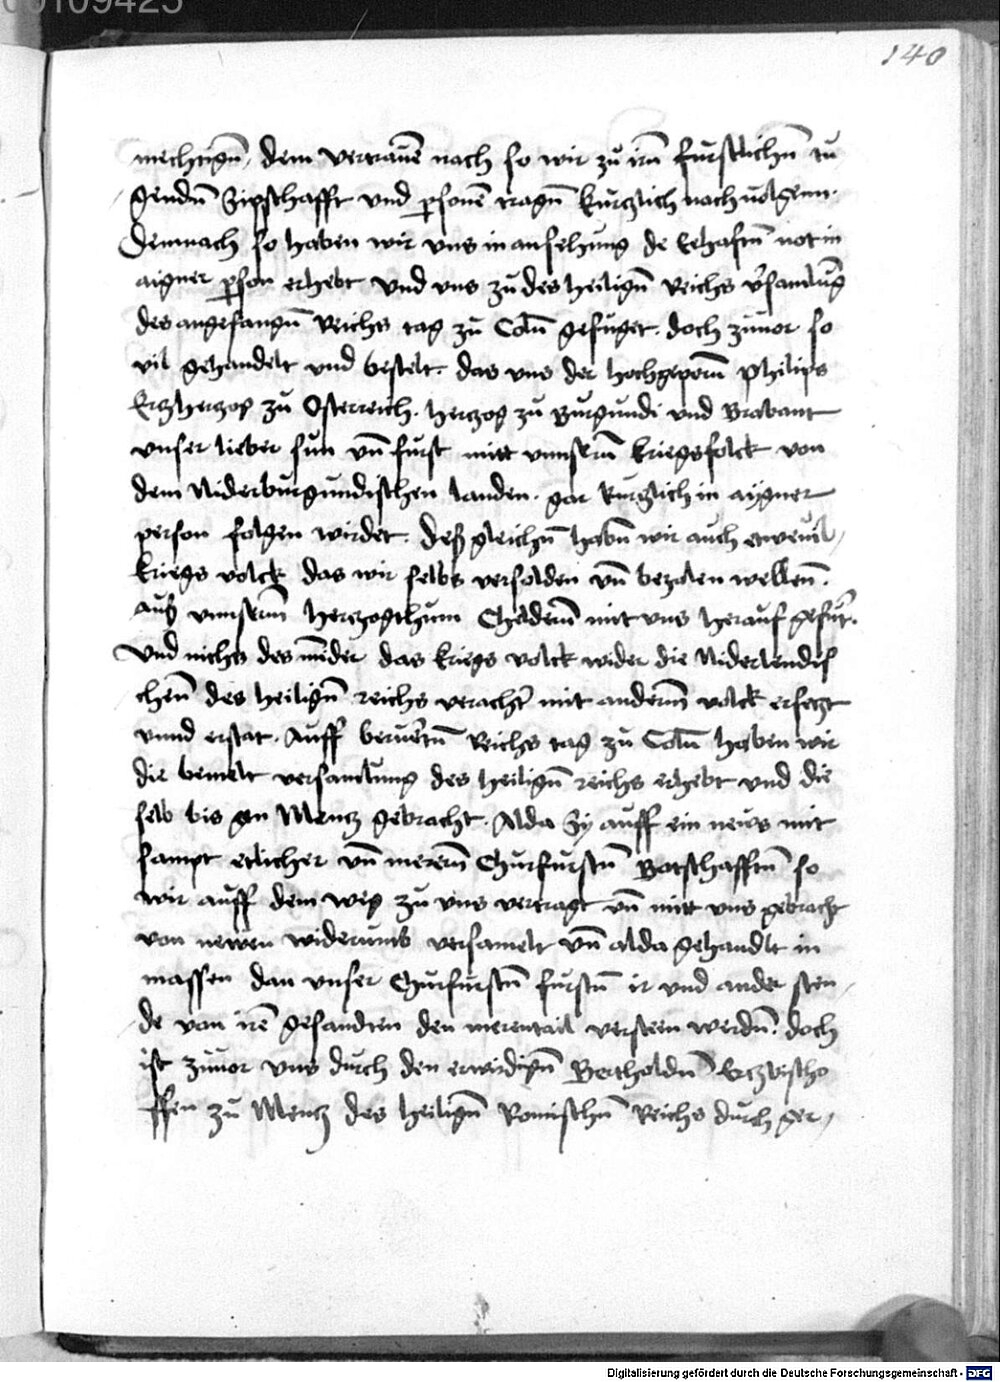 00109425
140
mechtign̄, dem vertrauē nach so wir zu irn̄ furstlichn̄ tu
gendn̄ Sipschafft vnd personē tragn̄ kurtzlich nachuolgenn.
Demnach so haben wir vns in ansehung de Eehaftn̄ not in
aigner person erhebt vnd vns zu des heilign̄ Reichs v̄samlūg
des angefangn̄ Reichs tag zu Coln̄ gefuget. doch zuuor so
vil gehandelt vnd bestelt. das vns der hochgeporn̄ Philips
Ertzhertzog zu Osterreich. hertzog zu Burgundi vnd Brabant
vnser lieber sun vn̄ furst mitt vnnserm̄ kriegsfolck von
dem Niderburgundischen landen. gar kurtzlich in aygner
person folgen wirdet. desz gleichn̄ habn̄ wir auch etweuil
kriegs volck das wir selbs versolden vn̄ bezalen wellenn̄.
ausz vnnserm̄ hertzogthum Ghelderm̄ mit vns herauf gefūr̄.
vnd nichs des mēder das kriegs volck wider die Niderlendis
chenn̄ des heilign̄ reichs verachtr̄ mit anderm̄ volck ersetzt
vnnd erstat. Auff beruertn̄ Reichs tag zu Coln̄ haben wir
die bemelt versamlung des heilign̄ reichs erhebt vnd die
selb bis gn Mentz gebracht. Alda Sy auff ein neẅs mit
sampt etlicher vn̄ merern̄ Churfurstn̄ Botschafftn̄ so
wir auff dem weg zu vns vertragt vn̄ mitt vns gebracht
von neẅen widerumb versamelt vn̄ alda gehandlt in
massen dan vnser Churfurstn̄ furstn̄ ir vnd ander sten
de von irē gesandten den merentail versteen werdn̄. doch
ist zuuor vns durch den erwirdign̄ Bertholdn̄ Ertzbischo
ffen zu Mentz des heilign̄ Romischn̄ Reichs durch ger
Digitalisierung gefördert durch die Deutsche Forschungsgemeinschaft - DFG